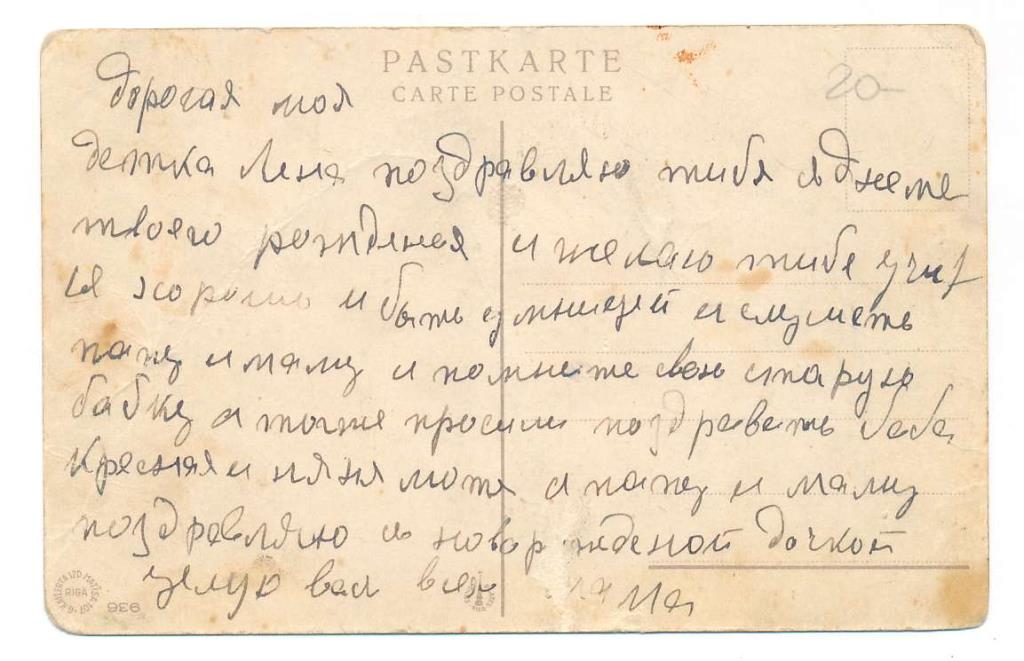 PASTKARTE
CARTE POSTALE
20-
Дорогая моя
детка Лена поздравляю тибя с днеме
твоего рождения и желаю тибе учит
ся хорошо и быть умницей и слушеть
папу и маму и помните свою старую
бабку а также просили поздраветь баба
Кресная и няня може а папу и маму
поздравляю с новорожденой дочкой
целую вас всех мама
RIGA
936